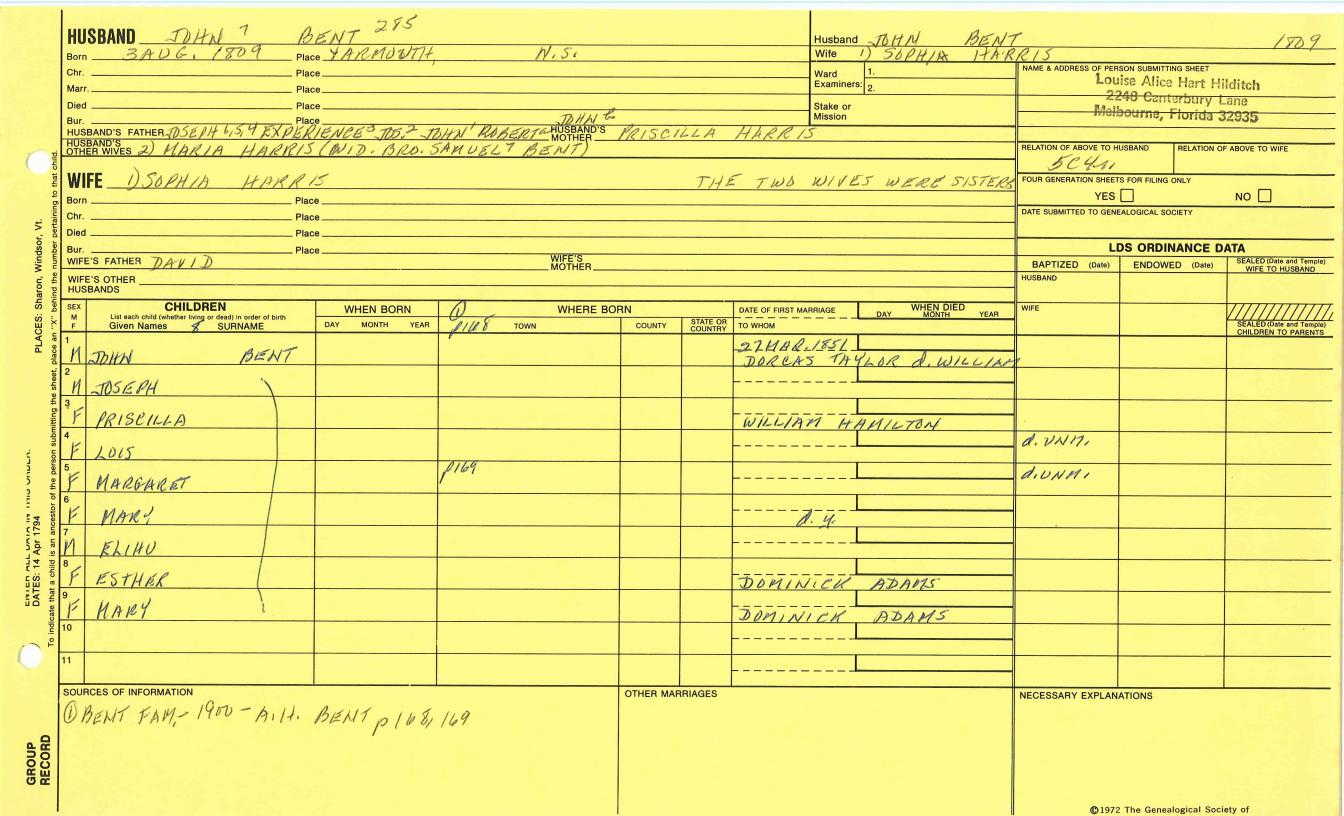 HUSBAND JOHN 7 BENT 285
Born 3 AUG. 1809 Place YARMOUTH, N.S.
Chr. Place
Marr. Place
Died Place
Bur. Place
JOHN 6
HUSBAND'S FATHER JOSEPH 6,5,4 EXPERIENCE3 JOS.2 JOHN1 ROBERT HUSBAND'S MOTHER PRISCILLA HARRIS
HUSBAND'S OTHER WIVES 2) MARIA HARRIS (WID. BRO. SAMUEL 7 BENT)
Husband JOHN BENT 1809
Wife 1) SOPHIA HARRIS
Ward Examiners: 1.
2.
Stake or Mission
NAME & ADDRESS OF PERSON SUBMITTING SHEET
Louise Alice Hart Hilditch
2240 Canterbury Lane
Melbourne, Florida 32935
RELATION OF ABOVE TO HUSBAND RELATION OF ABOVE TO WIFE
5C4r.
FOUR GENERATION SHEETS FOR FILING ONLY
YES NO
DATE SUBMITTED TO GENEALOGICAL SOCIETY
WIFE 1) SOPHIA HARRIS THE TWO WIVES WERE SISTERS
Born Place
Chr. Place
Died Place
Bur. Place
WIFE'S FATHER DAVID WIFE'S MOTHER
WIFE'S OTHER HUSBANDS
LDS ORDINANCE DATA
BAPTIZED (Date) ENDOWED (Date) SEALED (Date and Temple) WIFE TO HUSBAND
HUSBAND
WIFE
SEALED (Date and Temple) CHILDREN TO PARENTS
SEX M F
CHILDREN
List each child (whether living or dead) in order of birth
Given Names & SURNAME
WHEN BORN
DAY MONTH YEAR
① WHERE BORN
p168 TOWN COUNTY STATE OR COUNTRY
DATE OF FIRST MARRIAGE
TO WHOM
WHEN DIED
DAY MONTH YEAR
1 M JOHN BENT 27 MAR. 1851
DORCAS TAYLOR d. WILLIAM
2 M JOSEPH
3 F PRISCILLA WILLIAM HAMILTON
4 F LOIS d. UNM.
5 F MARGARET p169 d. UNM.
6 F MARY d. y.
7 M ELIHU
8 F ESTHER DOMINICK ADAMS
9 F MARY DOMINICK ADAMS
10
11
SOURCES OF INFORMATION
① BENT FAM,- 1900 - A.H. BENT p168, 169
OTHER MARRIAGES
NECESSARY EXPLANATIONS
©1972 The Genealogical Society of
PLACES: Sharon, Windsor, Vt.
DATES: 14 Apr 1794
To indicate that a child is an ancestor of the person submitting the sheet, place an "X" behind the number pertaining to that child.
GROUP RECORD